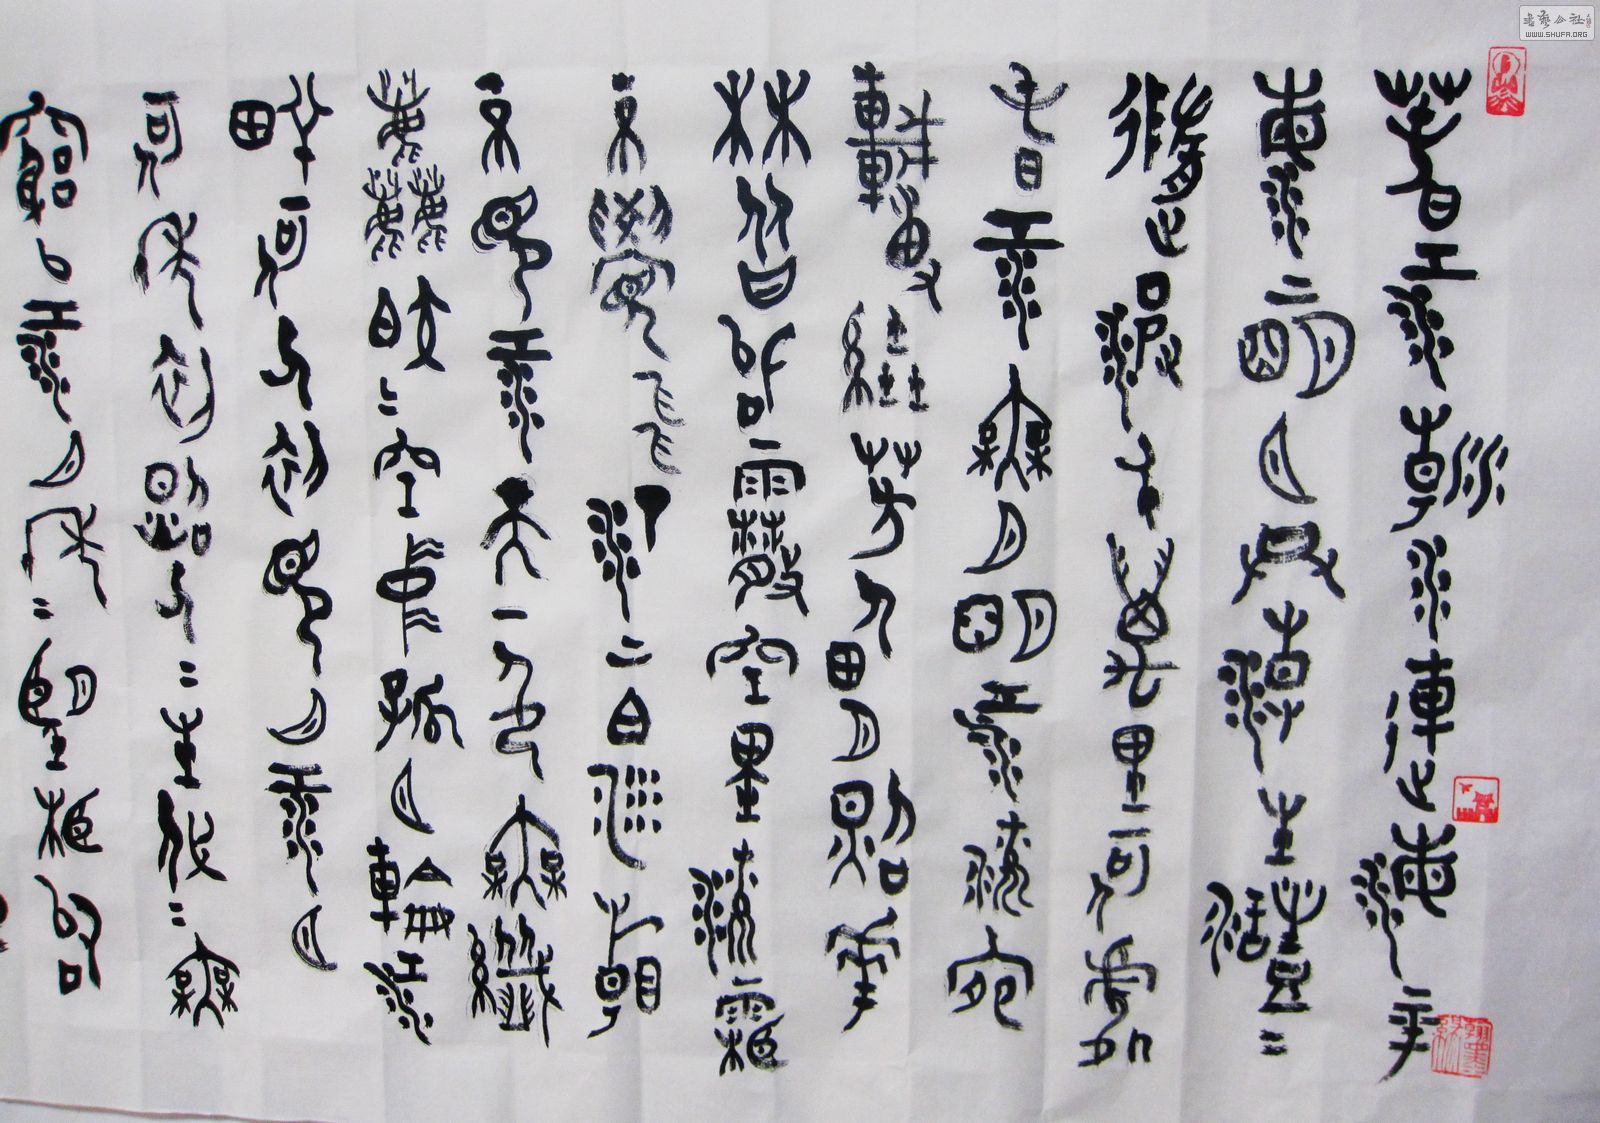 春江潮水連海平
海上明月共潮生灩〻
隨波千萬里何處
春江無月明江流宛
轉繞芳甸月照花
林皆似霰空里流霜
不覺飛汀上白沙看
不見江天一色無纖
塵皎〻空中孤月輪江
畔何人初見月江月
何年初照人〻生代〻無
窮已江月年〻望相似
書藝公社
WWW.SHUFA.ORG